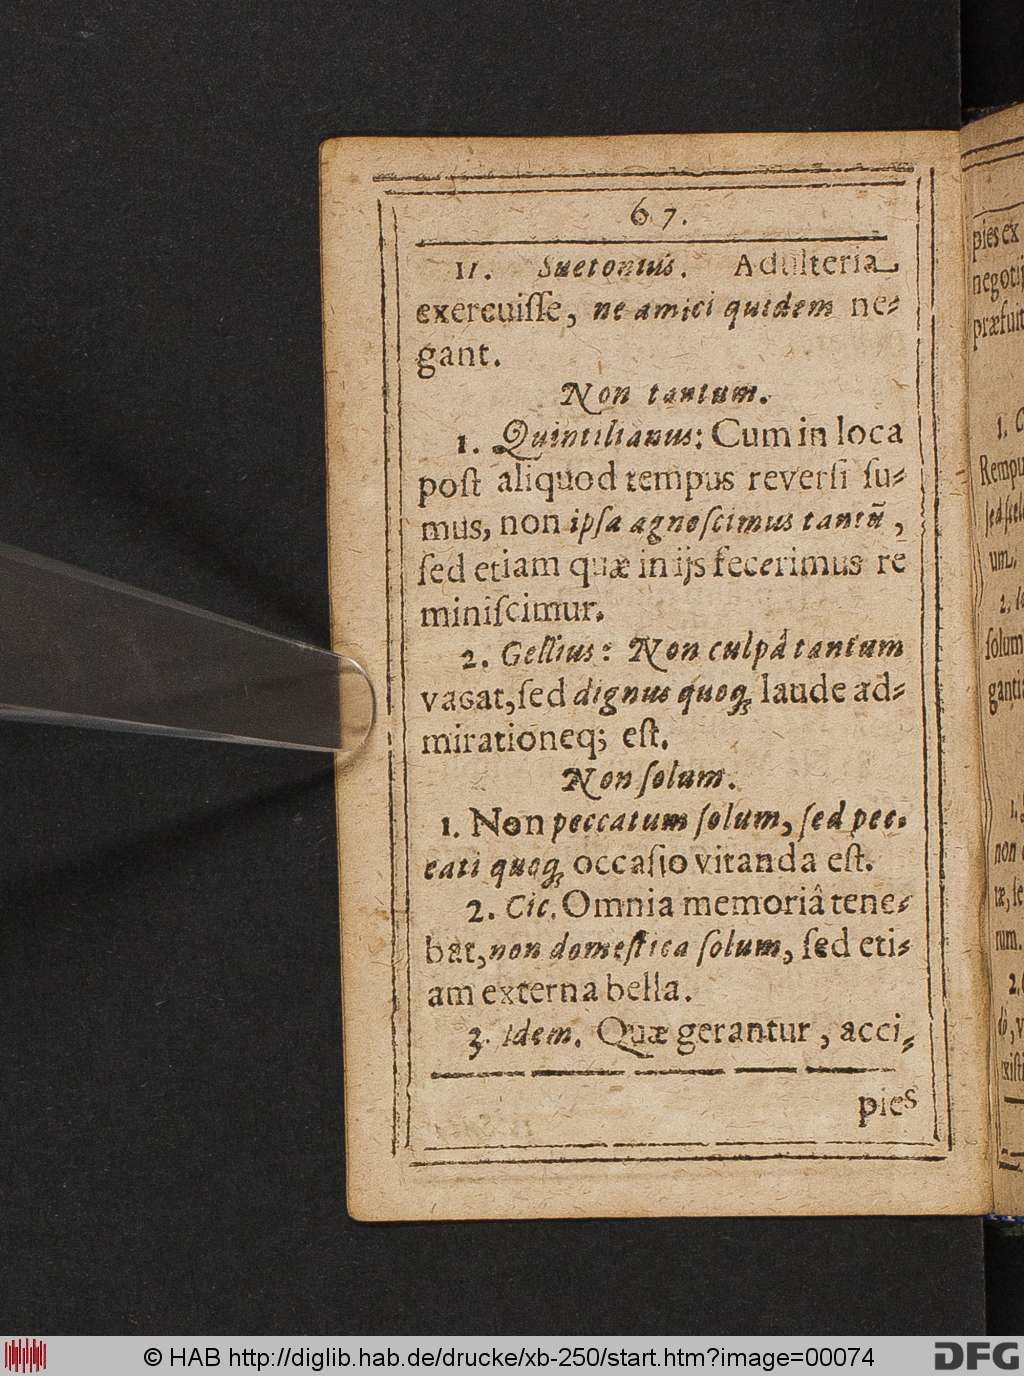 67.
11. Suetonius. Adulteria
exercuiſſe, ne amici quidem ne-
gant.
Non tantum.
1. Quintilianus: Cum in loca
poſt aliquod tempus reverſi ſu-
mus, non ipſa agnoſcimus tantũ,
ſed etiam quæ in ijs fecerimus re
miniſcimur.
2. Gellius: Non culpâ tantum
vacat, ſed dignus quoq; laude ad-
mirationeq; eſt.
Non ſolum.
1. Non peccatum ſolum, ſed pec-
cati quoq; occaſio vitanda eſt.
2. Cic. Omnia memoriâ tene-
bat, non domeſtica ſolum, ſed eti-
am externa bella.
3. Idem. Quæ gerantur, acci-
pies
pies ex
negotij
præfuit
1. C
Rempu
ſed ſcel
um.
2.
ſolum
gantia
1.
non
tæ, ſe
rum.
2.
dò, v
exiſti
© HAB http://diglib.hab.de/drucke/xb-250/start.htm?image=00074
DFG